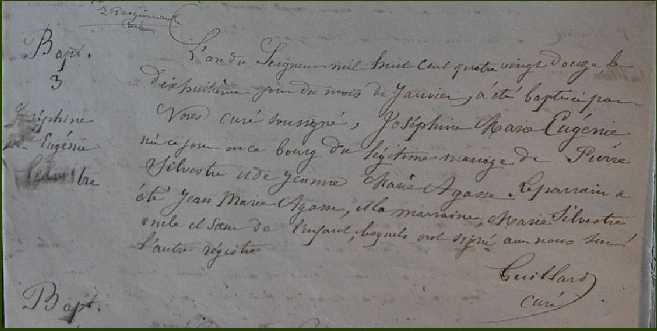 Curé
Bapt.
3
Joséphine
Eugénie
Silvestre
L'an du Seigneur mil huit cent quatre vingt douze le
dixhuitième jour du mois de Janvier, a été baptisée par
Nous curé soussigné, Joséphine Marie Eugénie
née ce jour en ce bourg du légitime mariage de Pierre
Silvestre et de Jeanne Marie Agasse. Le parrain a
été Jean Marie Agasse, et la marraine, Marie Silvestre
oncle et Sœur de l'enfant, lesquels ont signé avec nous sur
l'autre régistre
Guillard
curé
Bapt.